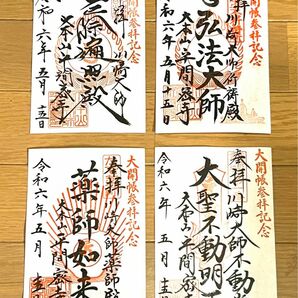 大開帳参拝記念
奉拝 川崎大師
遍照殿
大本山平間寺
令和六年五月十五日
大開帳参拝記念
奉拝 川崎大師祈祷殿
弘法大師
大本山平間寺
令和六年五月十五日
大開帳参拝記念
奉拝 川崎大師薬師殿
薬師如来
大本山平間寺
令和六年五月十五
大開帳参拝記念
奉拝 川崎大師不動
大聖不動明
大本山平間寺
令和六年五月十五